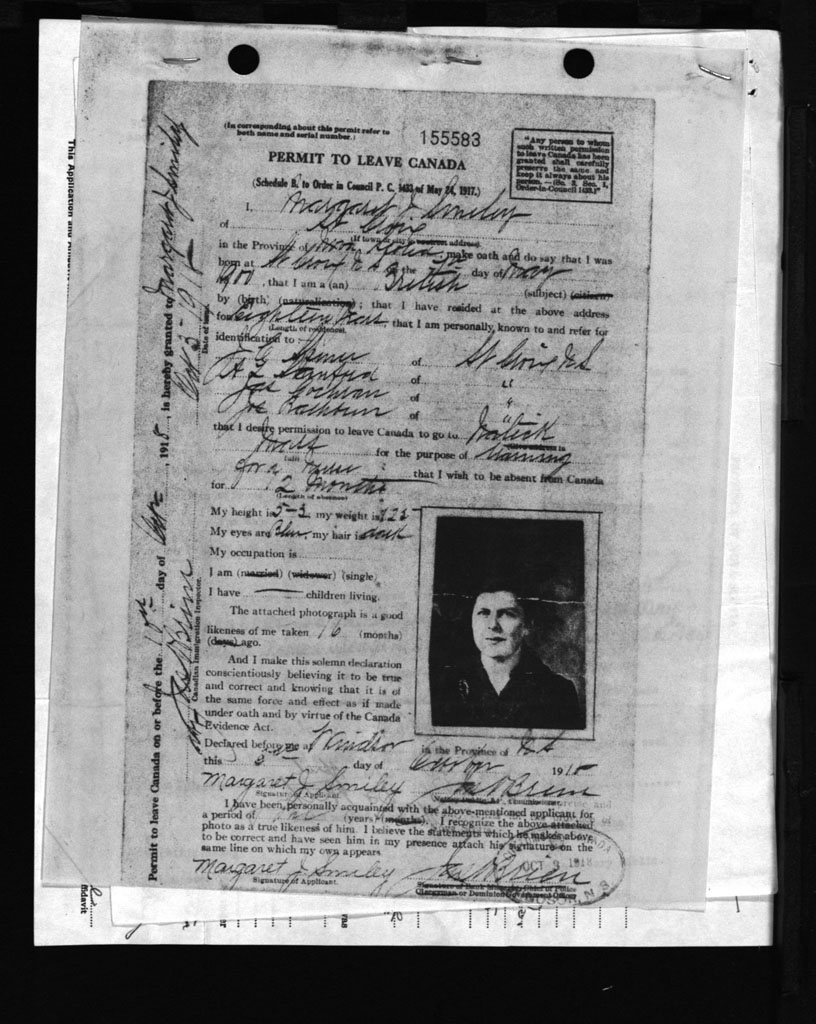 (In corresponding about this permit refer to
both name and serial number.)
155583
"Any person to whom
such written permission
to leave Canada has been
granted shall carefully
preserve the same and
keep it always about his
person.—(Sc. 2, Sec. 1,
Order-in-Council 1433.)"
PERMIT TO LEAVE CANADA
(Schedule B. to Order in Council P. C. 1433 of May 24, 1917.)
I, Margaret J. Smiley
of St Croix
(If town or city is street address)
in the Province of Nova Scotia make oath and do say that I was
born at St Croix N S the day of May
1900, that I am a (an) British (subject) (citizen)
by (birth) (naturalization); that I have resided at the above address
for Eighteen Years, that I am personally known to and refer for
(Length of residence)
identification to
of St Croix N S
A Sanford of "
Jas Cochran of "
of "
that I desire permission to leave Canada to go to Natick
Mass for the purpose of training
for a nurse ; that I wish to be absent from Canada
for 12 Months
(Length of absence)
My height is 5-3, my weight is 123
My eyes are Blue my hair is dark
My occupation is
I am (married) (widower) (single)
I have children living.
The attached photograph is a good
likeness of me taken 16 (months)
(days) ago.
And I make this solemn declaration
conscientiously believing it to be true
and correct and knowing that it is of
the same force and effect as if made
under oath and by virtue of the Canada
Evidence Act.
Declared before me at Windsor in the Province of N S
this 3rd day of 1918
Margaret J Smiley
Signature of Applicant.
I have been personally acquainted with the above-mentioned applicant for
a period of (years) (months). I recognize the above attached
photo as a true likeness of him. I believe the statements which he makes above
to be correct and have seen him in my presence attach his signature on the
same line on which my own appears
Margaret J Smiley
Signature of Applicant.
OCT 3 1918
Permit to leave Canada on or before the 10th day of Oct, 1918, is hereby granted to Margaret J Smiley
Oct 3-1918
Date of issue.
Canadian Immigration Inspector.
This Application and